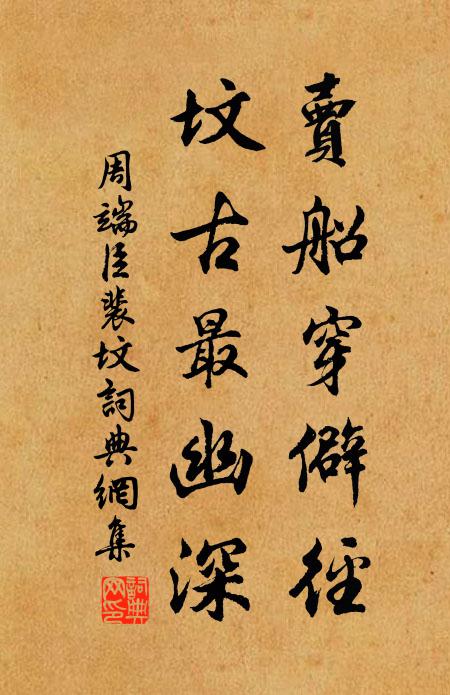 賣船穿僻徑
坟古最幽深
周端臣裴坟詞典網集
詞典網印